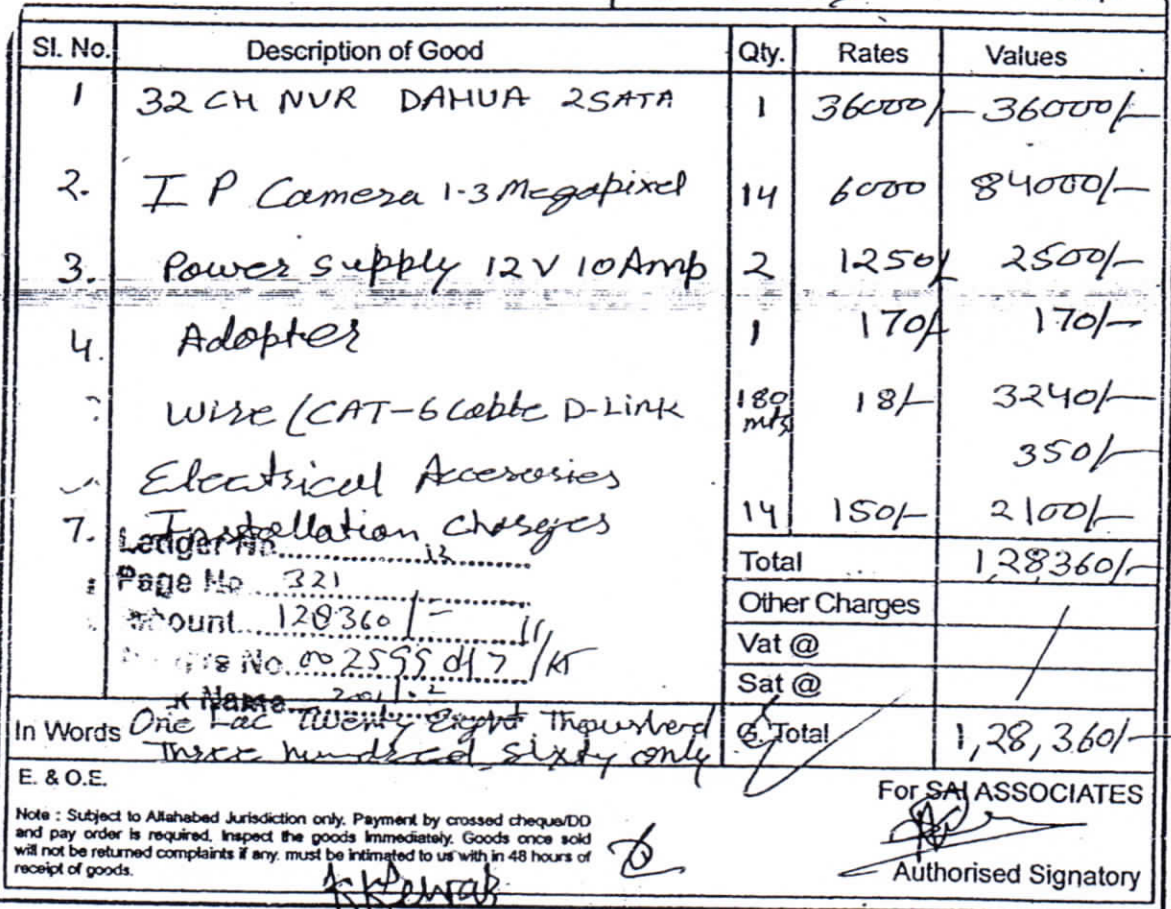 Sl. No. Description of Good Qty. Rates Values
1 32 CH NVR DAHUA 2SATA 1 36000/- 36000/-
2. I P Camera 1-3 Megapixel 14 6000 84000/-
3. Power supply 12 V 10 Amp 2 1250/ 2500/-
4. Adopter 1 170/- 170/-
Wire (CAT-6 Cable D-Link 180 mts 18/- 3240/-
Electrical Accesories 350/-
7. Installation Charges 14 150/- 2100/-
Ledger No. 12
Total 1,28,360/-
Page No 321
Other Charges
Amount 128360/-
Vat @
No. 002595
Sat @
Name
In Words One Lac Twenty Eight Thousherd
Three hundred sixty only
G. Total 1,28,360/-
E. & O.E.
For SAI ASSOCIATES
Note : Subject to Allahabed Jurisdiction only. Payment by crossed cheque/DD
and pay order is required. Inspect the goods Immediately. Goods once sold
will not be returned complaints if any. must be intimated to us with in 48 hours of
receipt of goods.
Authorised Signatory